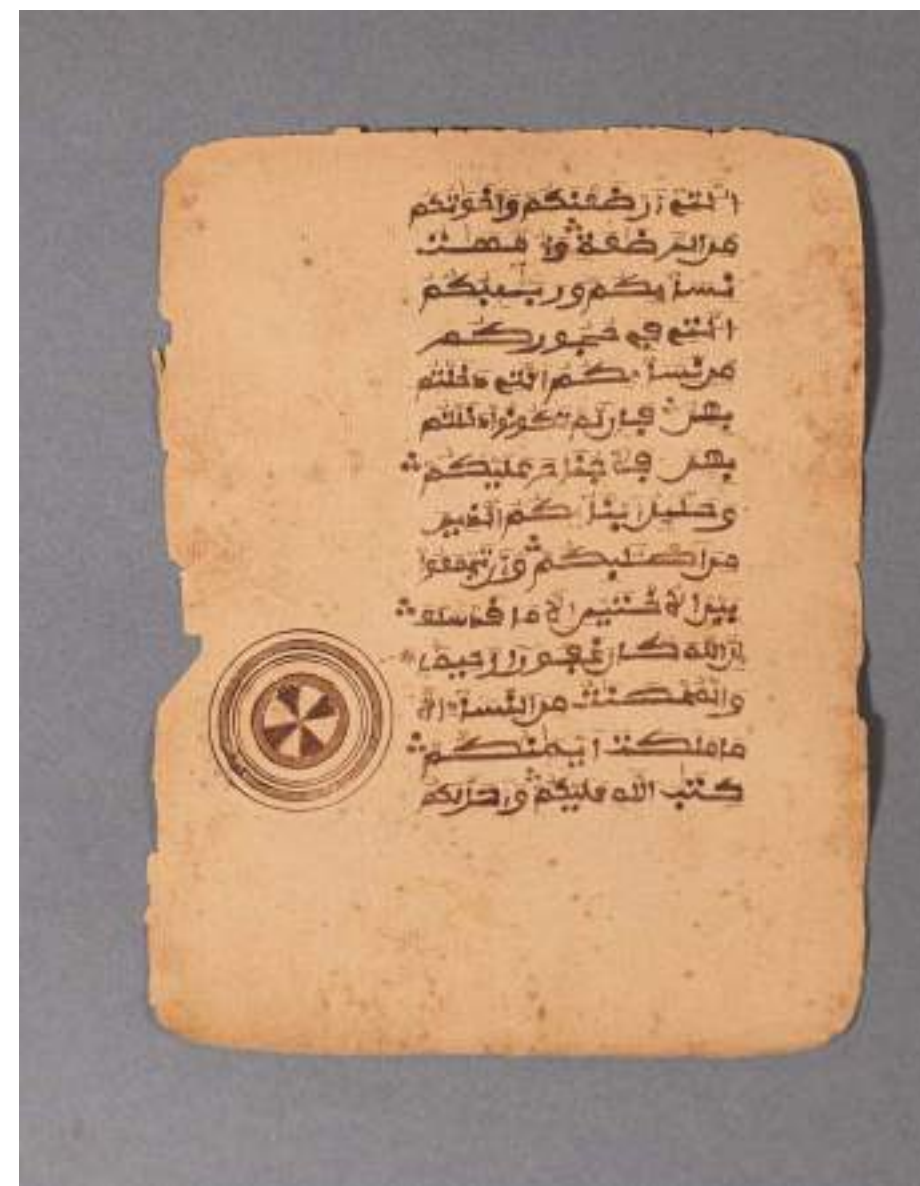 التي أرضعنكم وأخوتكم
من الرضعة وأمهت
نسايكم وربيبكم
التي في حجوركم
من نسايكم التي دخلتم
بهن فإن لم تكونوا دخلتم
بهن فلا جناح عليكم
وحليل أبنايكم الذين
من أصلبكم وأن تجمعوا
بين الأختين إلا ما قد سلف
إن الله كان غفورا رحيما
والمحصنت من النساء إلا
ما ملكت أيمنكم
كتب الله عليكم وأحل لكم